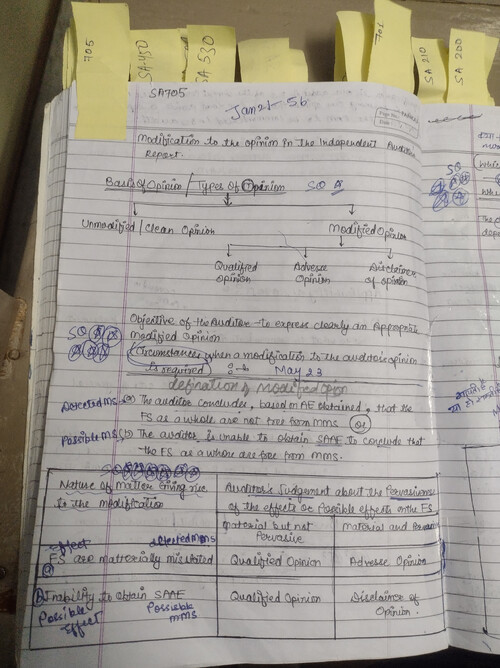 705
SA 450
SA 530
701
SA 210
SA 200
SA705
Jan21- 5b
Page No.
Date
Modification to the opinion in the Independent Auditors
Report.
Basis of Opinion / Types of Opinion SQ A
Unmodified / Clean Opinion Modified Opinion
Qualified Opinion
Adverse Opinion
Disclaimer of opinion
Objective of the Auditor - to express clearly an Appropriate
modified Opinion
SQ
Circumstances when a modification to the auditor's opinion
Is required :- May 23
definition of Modified Opinion
Detected MS (a) The auditor concludes, based on AE obtained, that the
FS as a whole are not free from MMS (or)
Possible MS (b) The auditor is unable to obtain SAAE to conclude that
the FS as a whole are free from MMS.
Nature of Matter Giving rise
to the modification
Auditor's Judgement about the Pervasiveness
of the effects or Possible effects on the FS
Material but not
Pervasive
Material and Pervasive
effect detected mms
(a) FS are materially misstated Qualified Opinion Adverse Opinion
(b) Inability to obtain SAAE Qualified Opinion Disclaimer of
Opinion.
Possible
Effect
Possible
mms
SQ